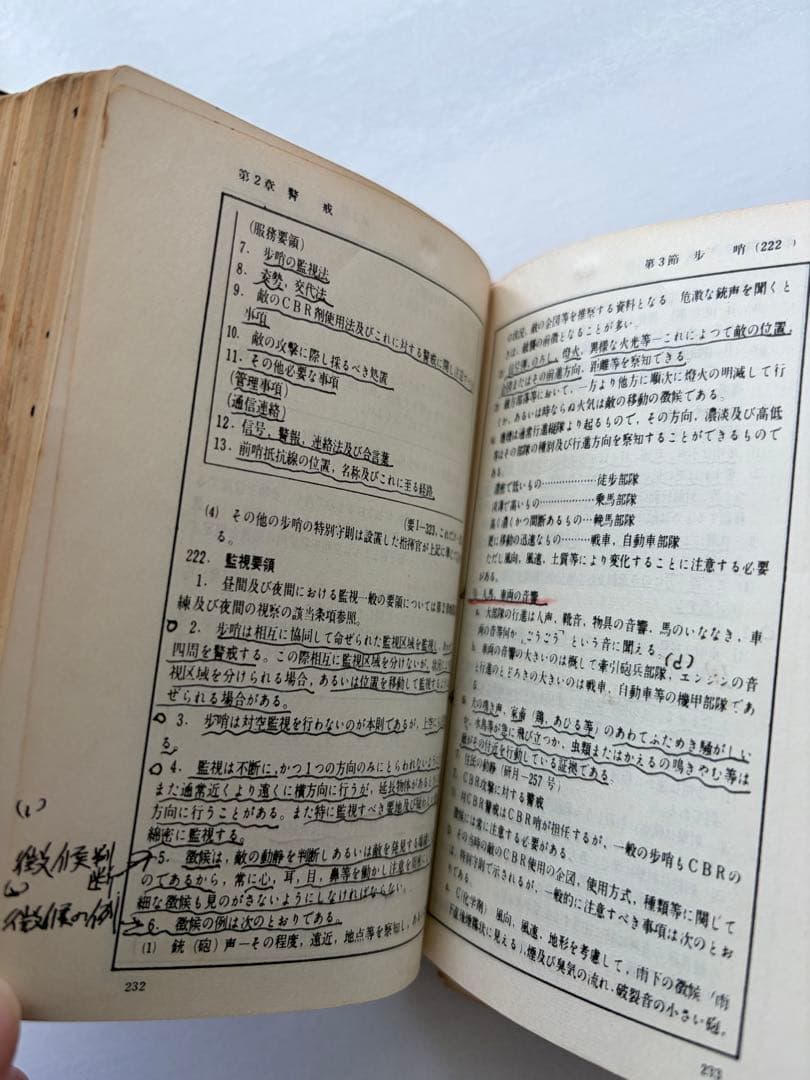 第2章 警 戒
(服務要領)
7. 歩哨の監視法
8. 姿勢，交代法
9. 敵のCBR剤使用法及びこれに対する警戒に関し
事項
10. 敵の攻撃に際し採るべき処置
11. その他必要な事項
(管理事項)
(通信連絡)
12. 信号，警報，連絡法及び合言葉
13. 前哨抵抗線の位置，名称及びこれに至る経路
(要1-323，
(4) その他の歩哨の特別守則は設置した指揮官が上記に準じ
る。
222. 監視要領
1. 昼間及び夜間における監視一般の要領については第2
練及び夜間の視察の該当条項参照。
2. 歩哨は相互に協同して命ぜられた監視区域を監視し，
四周を警戒する。この際相互に監視区域を分けないが，
視区域を分けられる場合，あるいは位置を移動して監視する
ぜられる場合がある。
3. 歩哨は対空監視を行わないのが本則であるが，上空
る。
4. 監視は不断に，かつ1つの方向のみにとらわれないように
また通常近くより遠くに横方向に行うが，延長物体があるとき
方向に行うことがある。また特に監視すべき要地及び
綿密に監視する。
5. 徴候は，敵の動静を判断しあるいは敵を発見する
のであるから，常に心，耳，目，鼻等を働かし注意を
細な徴候も見のがさないようにしなければならない。
6. 徴候の例は次のとおりである。
(1) 銃（砲）声—その程度，遠近，地点等を察知し，
(1)
徴候判
断
徴候の例
232
第3節 歩 哨(222)
の状況，敵の企図等を推察する資料となる。急激な銃声を聞くと
きは，敵襲の前徴となることが多い。
信号弾，のろし，燈火，異様な火光等—これによつて敵の位置，
企図またはその前進方向，距離等を察知できる。
敵方部落等において，一方より他方に順次に燈火の明滅して行
くか，あるいは時ならぬ火気は敵の移動の徴候である。
塵煙は通常行進縦隊より起るもので，その方向，濃淡及び高低
等はその部隊の種別及び行進方向を察知することができるもので
ある。
濃密で低いもの………………徒歩部隊
淡薄で高いもの………………乗馬部隊
高く濃くかつ間断あるもの…輓馬部隊
更に移動の迅速なもの………戦車，自動車部隊
ただし風向，風速，土質等により変化することに注意する必要
がある。
人馬，車両の音響
a. 大部隊の行進は人声，靴音，物具の音響，馬のいななき，車
両の音等何か「ごうごう」という音に聞える。
(d)
b. 車両の音響の大きいのは概して牽引砲兵部隊，エンジンの音
と行進のとどろきの大きいのは戦車，自動車等の機甲部隊であ
る。
犬の鳴き声，家畜（鶏，あひる等）のあわてふためき騒がしい
水鳥等が急に飛び立つか，虫類またはかえるの鳴きやむ等は
敵がその付近を行動している証拠である。
住民の動静(研月—257号)
CBR攻撃に対する警戒
対CBR警戒はCBR哨が担任するが，一般の歩哨もCBRの
徴候には常に注意する必要がある。
その当時の敵のCBR使用の企図，使用方式，種類等に関して
は，特別守則で示されるが，一般的に注意すべき事項は次のとお
a. C(化学剤) 風向，風速，地形を考慮して，雨下の徴候「雨
下直後煙霧状に見える)，煙及び臭気の流れ，破裂音の小さい砲，
233